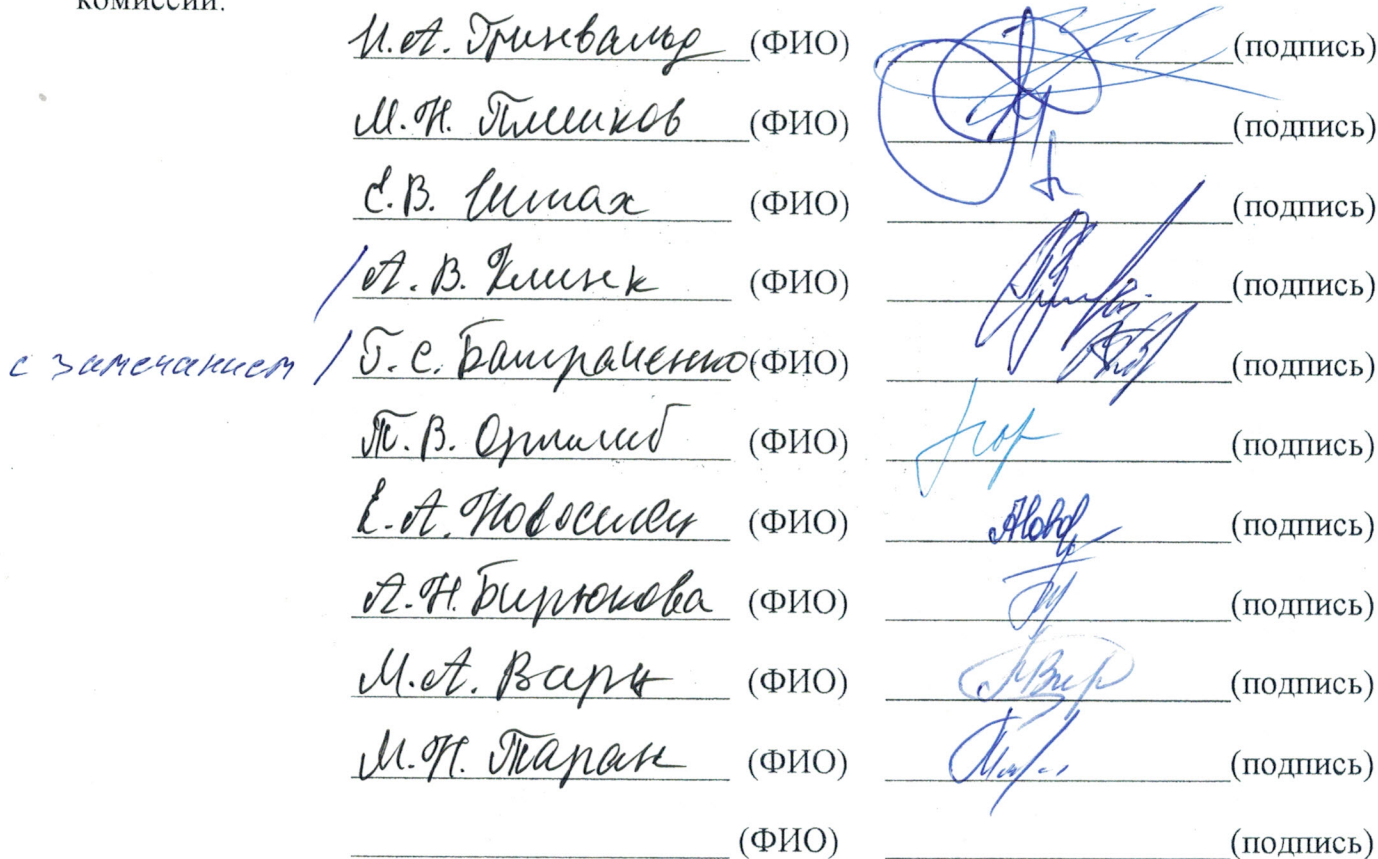 комиссии:
И.А. Гринвальд (ФИО) (подпись)
М.Н. (ФИО) (подпись)
Е.В. (ФИО) (подпись)
А.В. Клинк (ФИО) (подпись)
с замечанием Г.С. Батраченко (ФИО) (подпись)
Т.В. (ФИО) (подпись)
Е.А. Новоселец (ФИО) (подпись)
А.Н. Бирюкова (ФИО) (подпись)
М.А. (ФИО) (подпись)
М.Н. Таран (ФИО) (подпись)
(ФИО) (подпись)